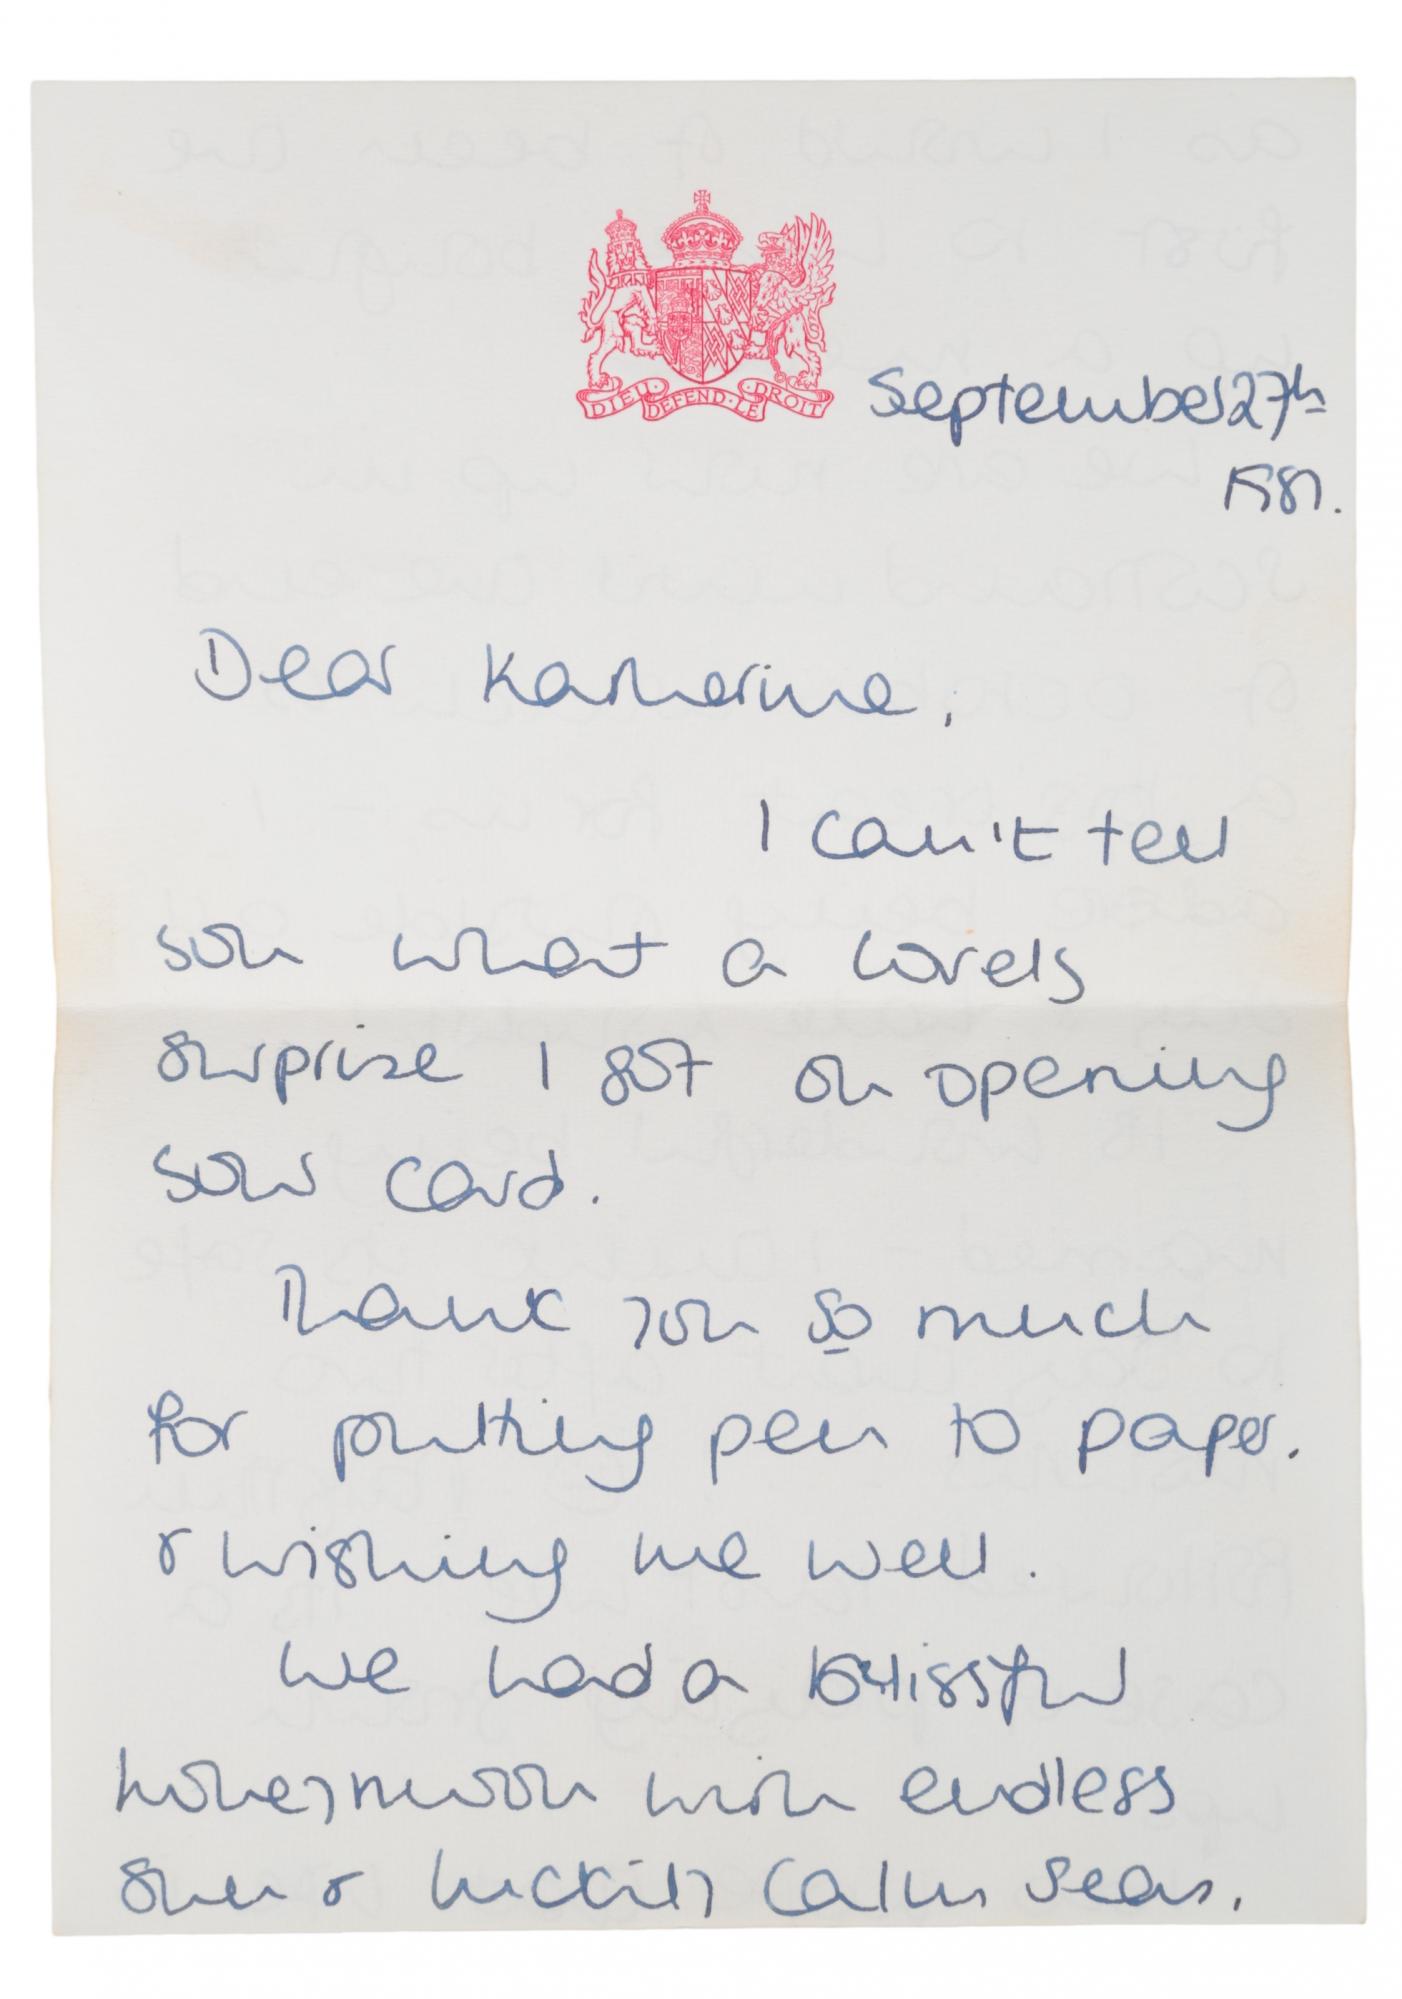 DIEU DEFEND LE DROIT
September 27th
1981.
Dear Katherine,
I can't tell
you what a lovely
surprise I got on opening
your card.
Thank you so much
for putting pen to paper.
& wishing me well.
We had a blissful
honeymoon with endless
sun & luckily calm seas.